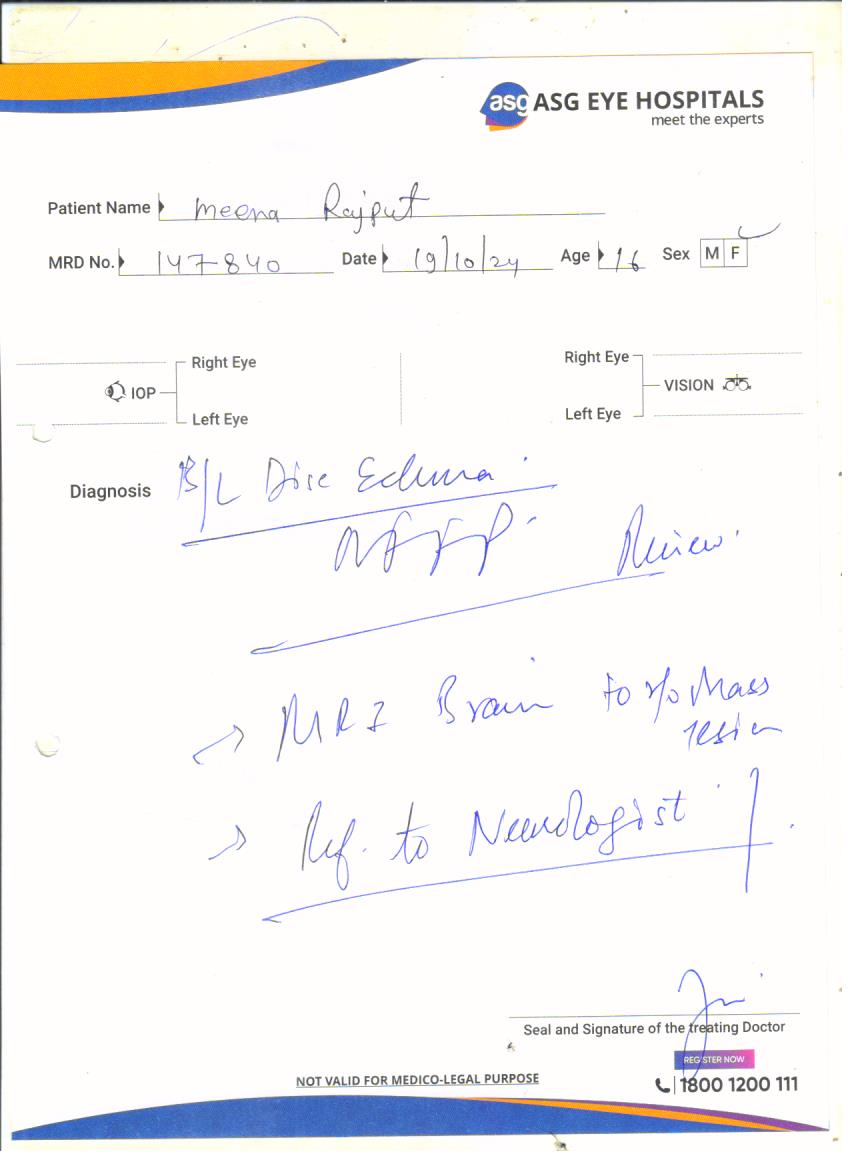 asg ASG EYE HOSPITALS
meet the experts
Patient Name Meena Rajput
MRD No. 147840 Date 19/10/24 Age 16 Sex M F
Right Eye
IOP
Left Eye
Right Eye
VISION
Left Eye
Diagnosis B/L Disc Edema
Review
→ MRI Brain to r/o Mass
lesion
→ Ref. to Neurologist
Seal and Signature of the treating Doctor
REGISTER NOW
NOT VALID FOR MEDICO-LEGAL PURPOSE
1800 1200 111